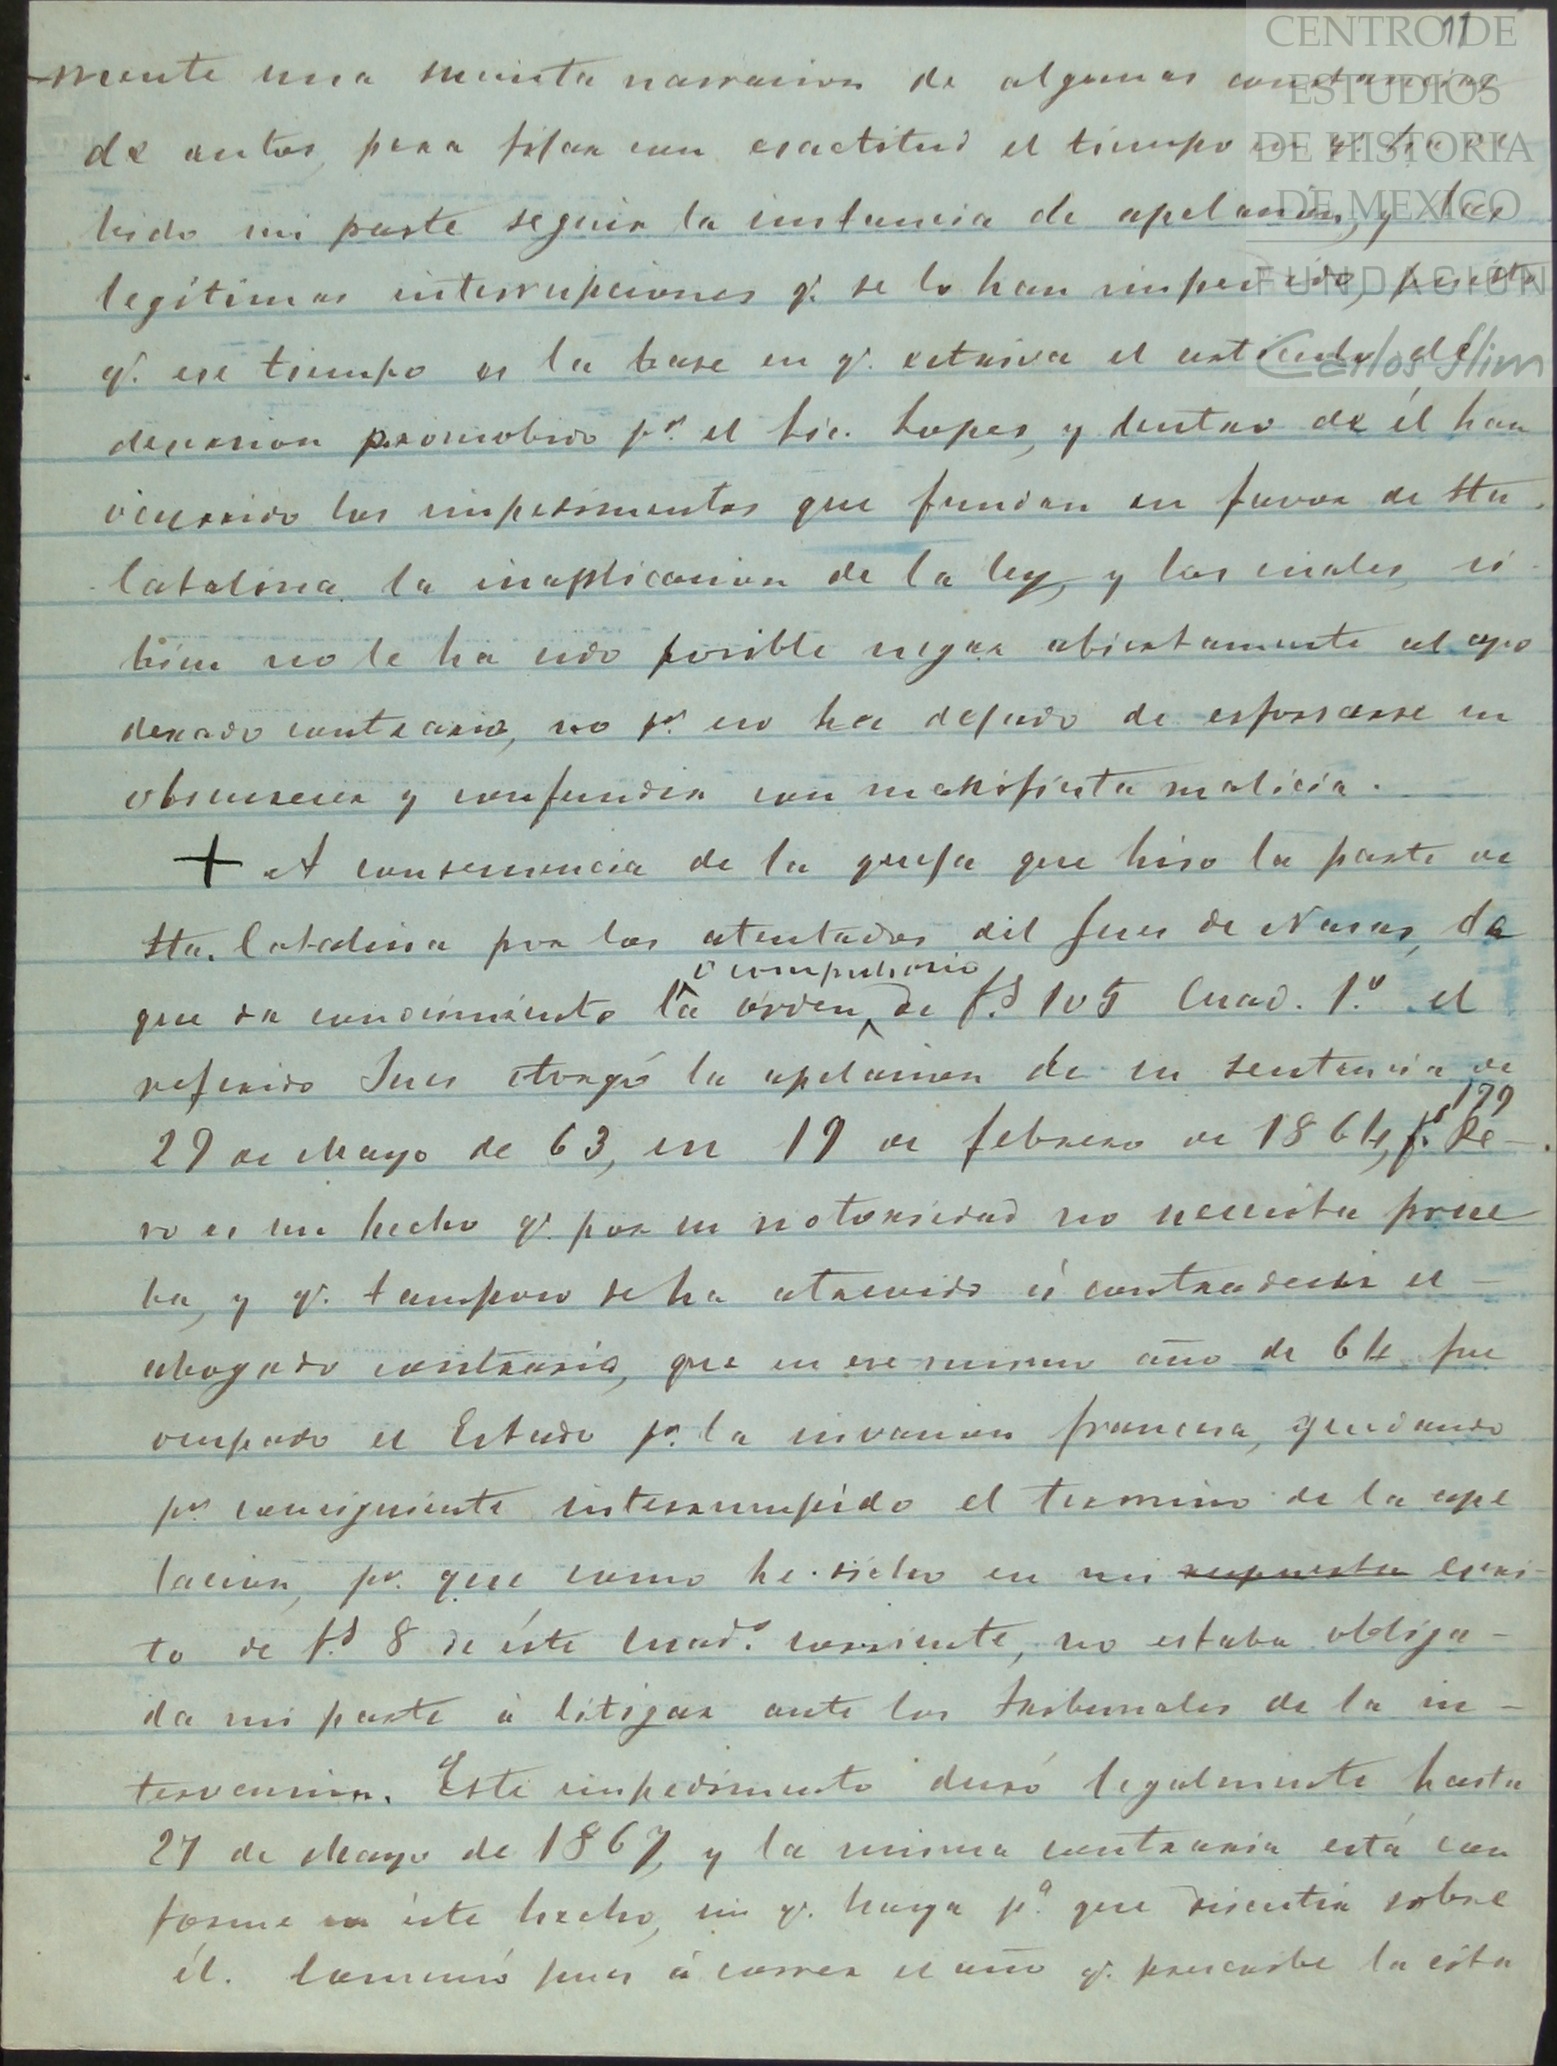 11
CENTRO DE
ESTUDIOS
DE HISTORIA
DE MEXICO
FUNDACION
Carlos Slim
mente una sucinta narracion de algunas constancias
de autos, para fijar con esactitud el tiempo en q.e ha de
bido mi parte seguir la instancia de apelacion, y las
legítimas interrupciones q.e se lo han impedido, puesto
q.e ese tiempo es la base en q.e estriva el articulo de
desercion promobido p.r el Lic. Lopes, y dentro de él han
ocurrido los impedimentos que fundan en favor de Sta.
Catalina la inaplicacion de la ley, y los cuales, si
bien no le ha sido posible negar abiertamente al apo
derado contrario, no p.r eso ha dejado de esforsarse en
obscurecer y confundir con manifiesta malicia.
+ A consecuencia de la queja que hiso la parte de
Sta. Catalina por los atentados del Jues de Nasas, de
que da conocimiento la órden ó compulsorio de f.s 105 Cuad. 1.o el
referido Jues otorgó la apelacion de su sentencia de
29 de Mayo de 63, en 19 de febrero de 1864, f.s 199 Pe-
ro es un hecho q.e por su notoriedad no necesita prue
ba, y q.e tampoco se ha atrevido á contradecir el
abogado contrario, que en ese mismo año de 64 fue
ocupado el Estado p.r la invacion francesa, quedando
p.r consiguiente interrumpido el termino de la ape
lacion, p.r que como he dicho en mi respuesta escri-
to de f.s 8 de éste Cuad.o corriente, no estaba obliga-
da mi parte á litigar ante los tribunales de la in-
tervencion. Este impedimento duró legalmente hasta
27 de Mayo de 1867, y la misma contraria está con
forme en éste hecho, sin q.e haya p.a que discutir sobre
él. Comensó pues á correr el año q.e prescribe la cita